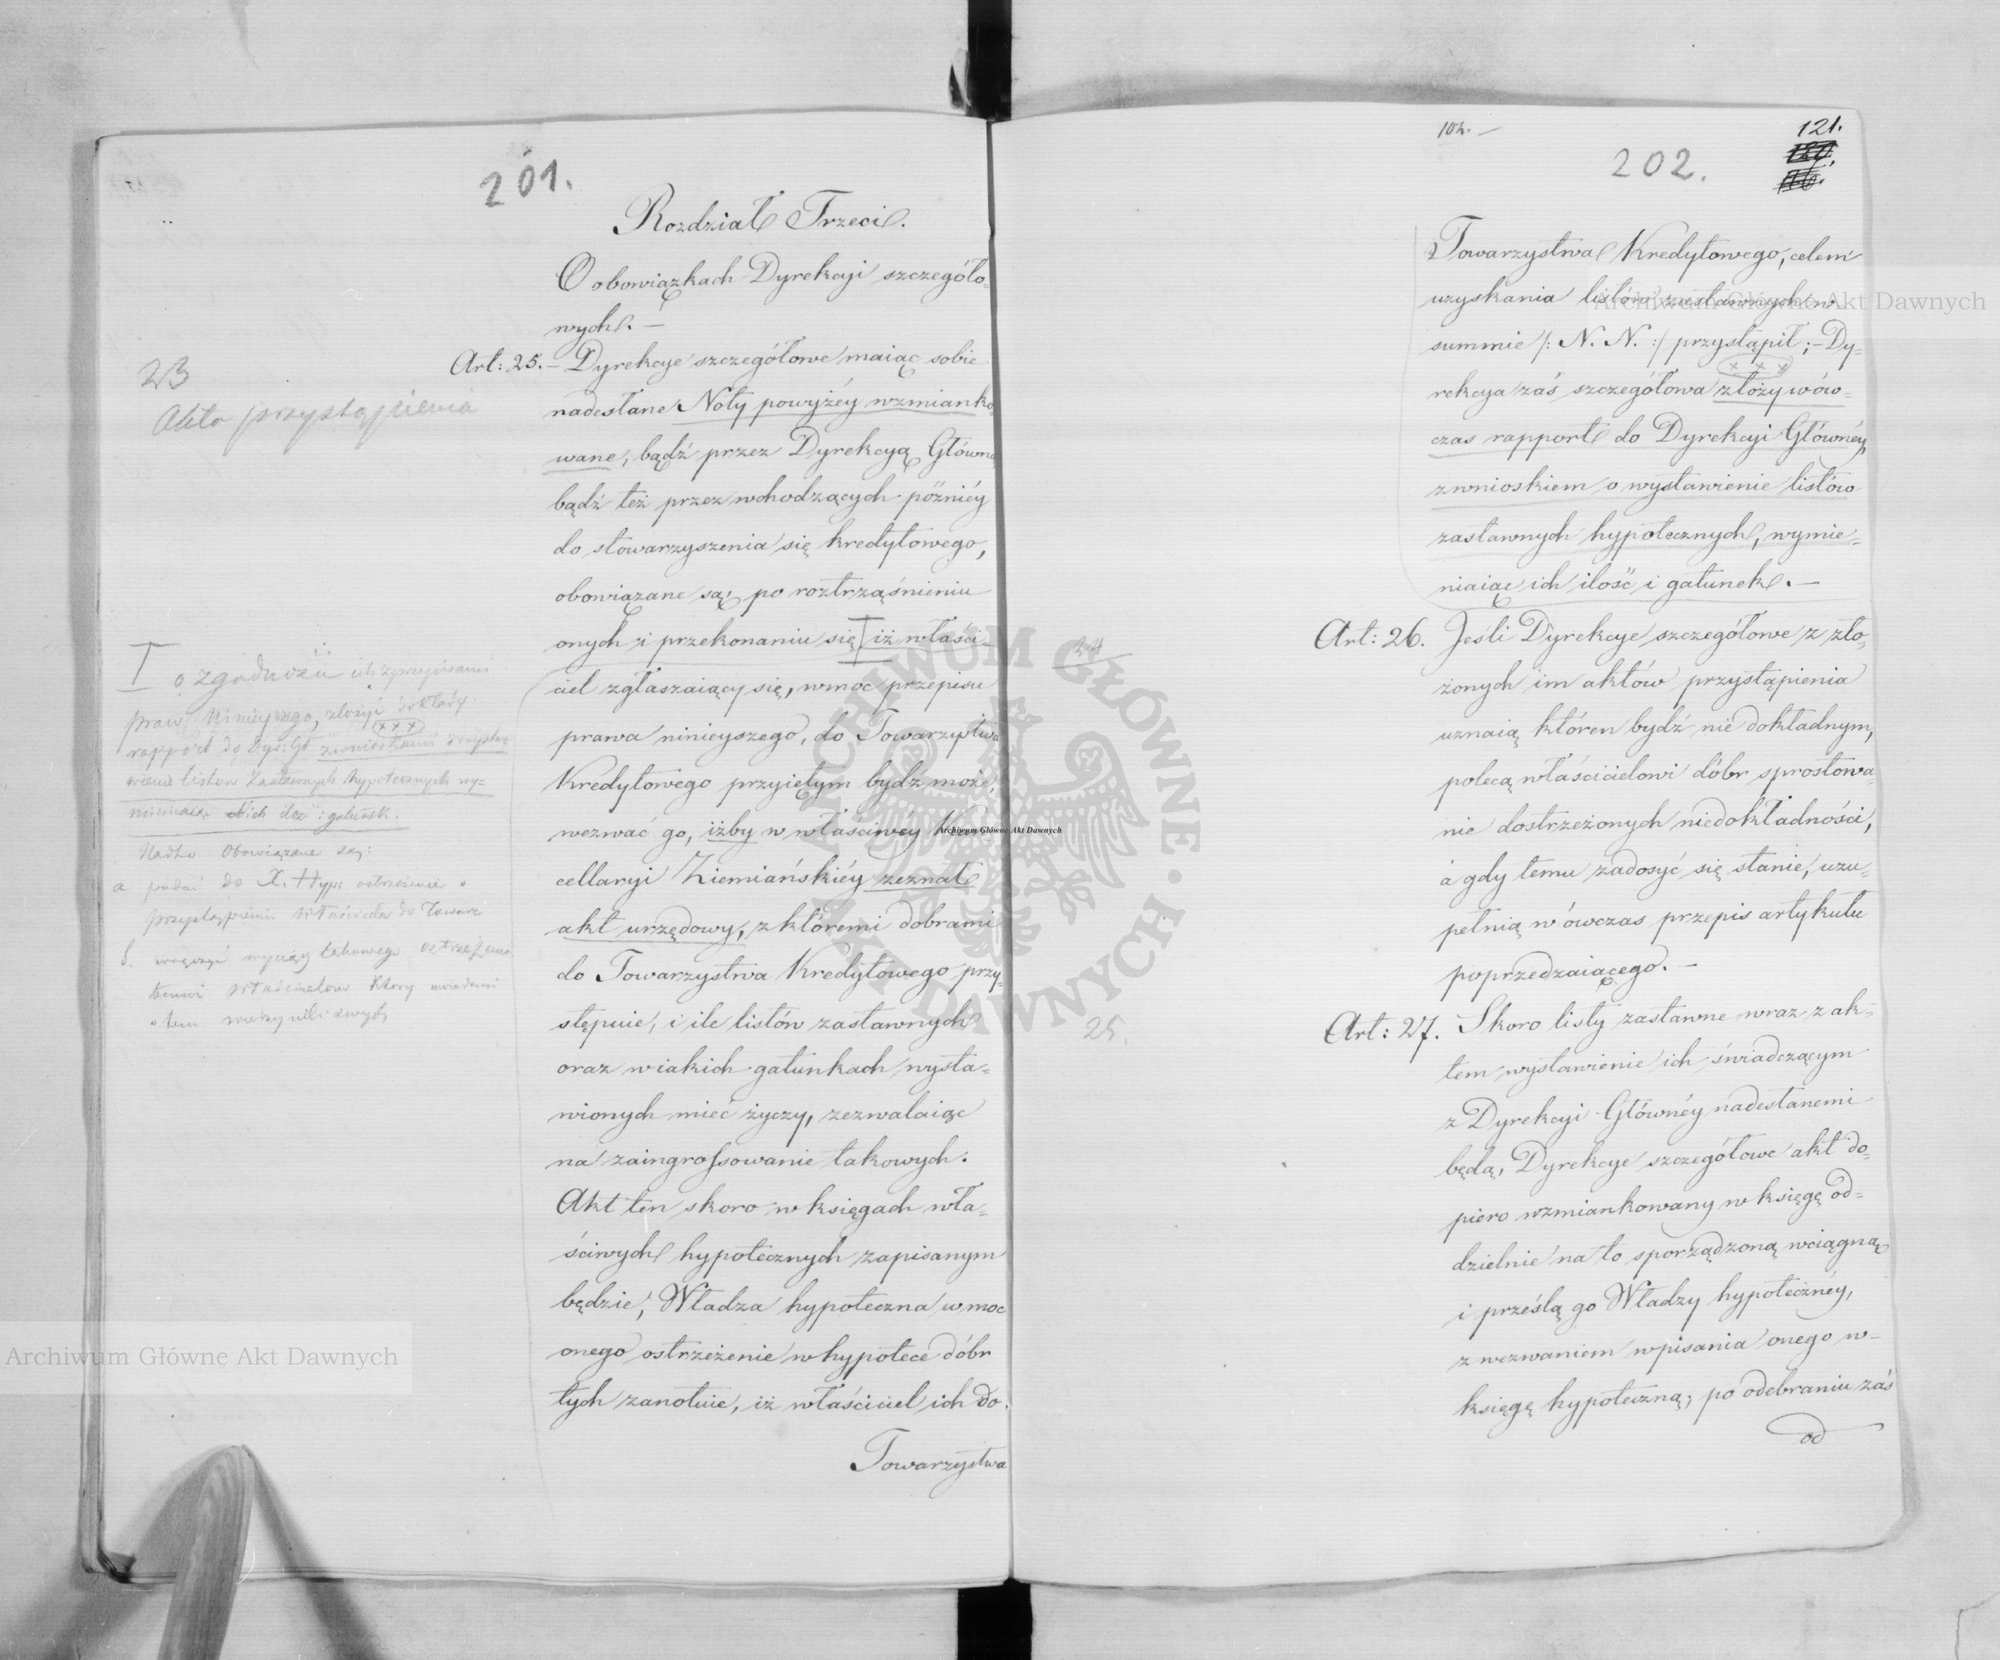 201.
Rozdział Trzeci.
O obowiązkach Dyrekcyi szczegóło-
wych. —
Art: 25. — Dyrekcye szczegółowe maiąc sobie
nadesłane Noty powyżéy wzmianko
wane, bądź przez Dyrekcyą Główną
bądź też przez wchodzących późniéy
do stowarzyszenia się kredytowego,
obowiązane są, po roztrząśnieniu
onych i przekonaniu się iż właści-
ciel zgłaszaiący się, w moc przepisu
prawa ninieyszego, do Towarzystwa
Kredytowego przyiętym bydź może,
wezwać go, iżby w właściwéy
cellaryi Ziemiańskiéy zeznał
akt urzędowy, z któremi dobrami
do Towarzystwa Kredytowego przy-
stępuie, i ile listów zastawnych
oraz w iakich gatunkach wysta-
wionych mieć życzy, zezwalaiąc
na zaingrossowanie takowych.
Akt ten skoro w księgach wła-
ściwych hypotecznych zapisanym
będzie, Władza hypoteczna w moc
onego ostrzeżenie w hypotece dóbr
tych zanotuie, iż właściciel ich do
Towarzystwa
23
Akta przystąpienia
o zgodności ich z przepisami
praw ninieyszego, złożyć dokłady
rapport do Dyr: Gł z wnioskami
wienie listow Zastawnych hypotecznych wy-
mieniaiąc ich ilość i gatunek.
Nadto Obowiązane są:
a podać do X. Hyp: ostrzeżenie o
przystąpieniu właściciela do Towarz
b. wręczyć wyciąg takowego ostrzeżenia
właścicielow który
o tem
102. —
121.
202.
Towarzystwa Kredytowego, celem
uzyskania listów zastawnych w
summie /: N. N. :/ przystąpił; — Dy-
rekcya zaś szczegółowa złoży wów-
czas rapport do Dyrekcyi Głównéy,
z wnioskiem o wystawienie listów
zastawnych hypotecznych, wymie-
niaiąc ich ilość i gatunek. —
Art: 26. Jeśli Dyrekcye szczegółowe z zło-
żonych im aktów przystąpienia
uznaią któren bydź nie dokładnym,
polecą właścicielowi dóbr sprostowa-
nie dostrzeżonych niedokładności,
a gdy temu zadosyć się stanie, uzu-
pełnią w ówczas przepis artykułu
poprzedzaiącego. —
Art: 27. Skoro listy zastawne wraz z ak-
tem wystawienie ich świadczącym
z Dyrekcyi Głównéy nadesłanemi
będą, Dyrekcye szczegółowe akt do-
piero wzmiankowany w księgę od-
dzielnie na to sporządzoną wciągną
i prześlą go Władzy hypotecznéy,
z wezwaniem wpisania onego w
księgę hypoteczną; po odebraniu zaś
od
24
25.
Archiwum Główne Akt Dawnych
Archiwum Główne Akt Dawnych
Archiwum Główne Akt Dawnych
ARCHIWUM GŁÓWNE · AKT DAWNYCH ·